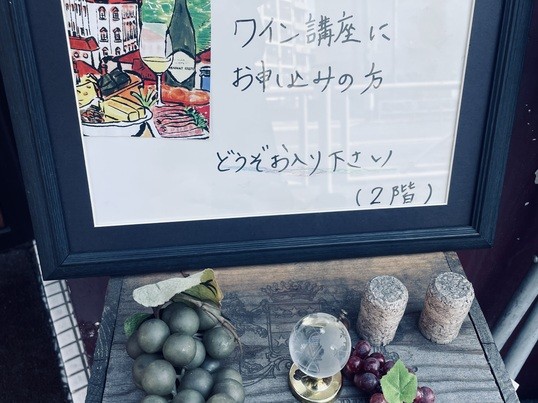 ワイン講座に
お申し込みの方
どうぞお入り下さい
(2階)